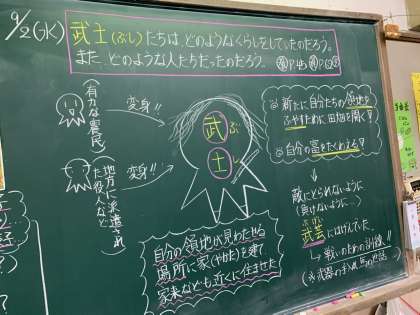 9/2(GK)
武士(ぶし)たちは、どのようなくらしをしていたのだろう。
また、どのような人たちだったのだろう。
(有力な農民)
変身!!
地方に派遣され
た役人など
変身!!
武ぶ
士し
自分の領地が見わたせる
場所に家(やかた)を建て
家来なども近くに住ませた
新たに自分たちの領地を
ふやすために田畑を開く
自分の富をたくわえる
敵にとられないように
(負けないように…)
武芸にはげんでいた
↳戦いのための訓練!!
(※武器の手入れ、馬の世話…)